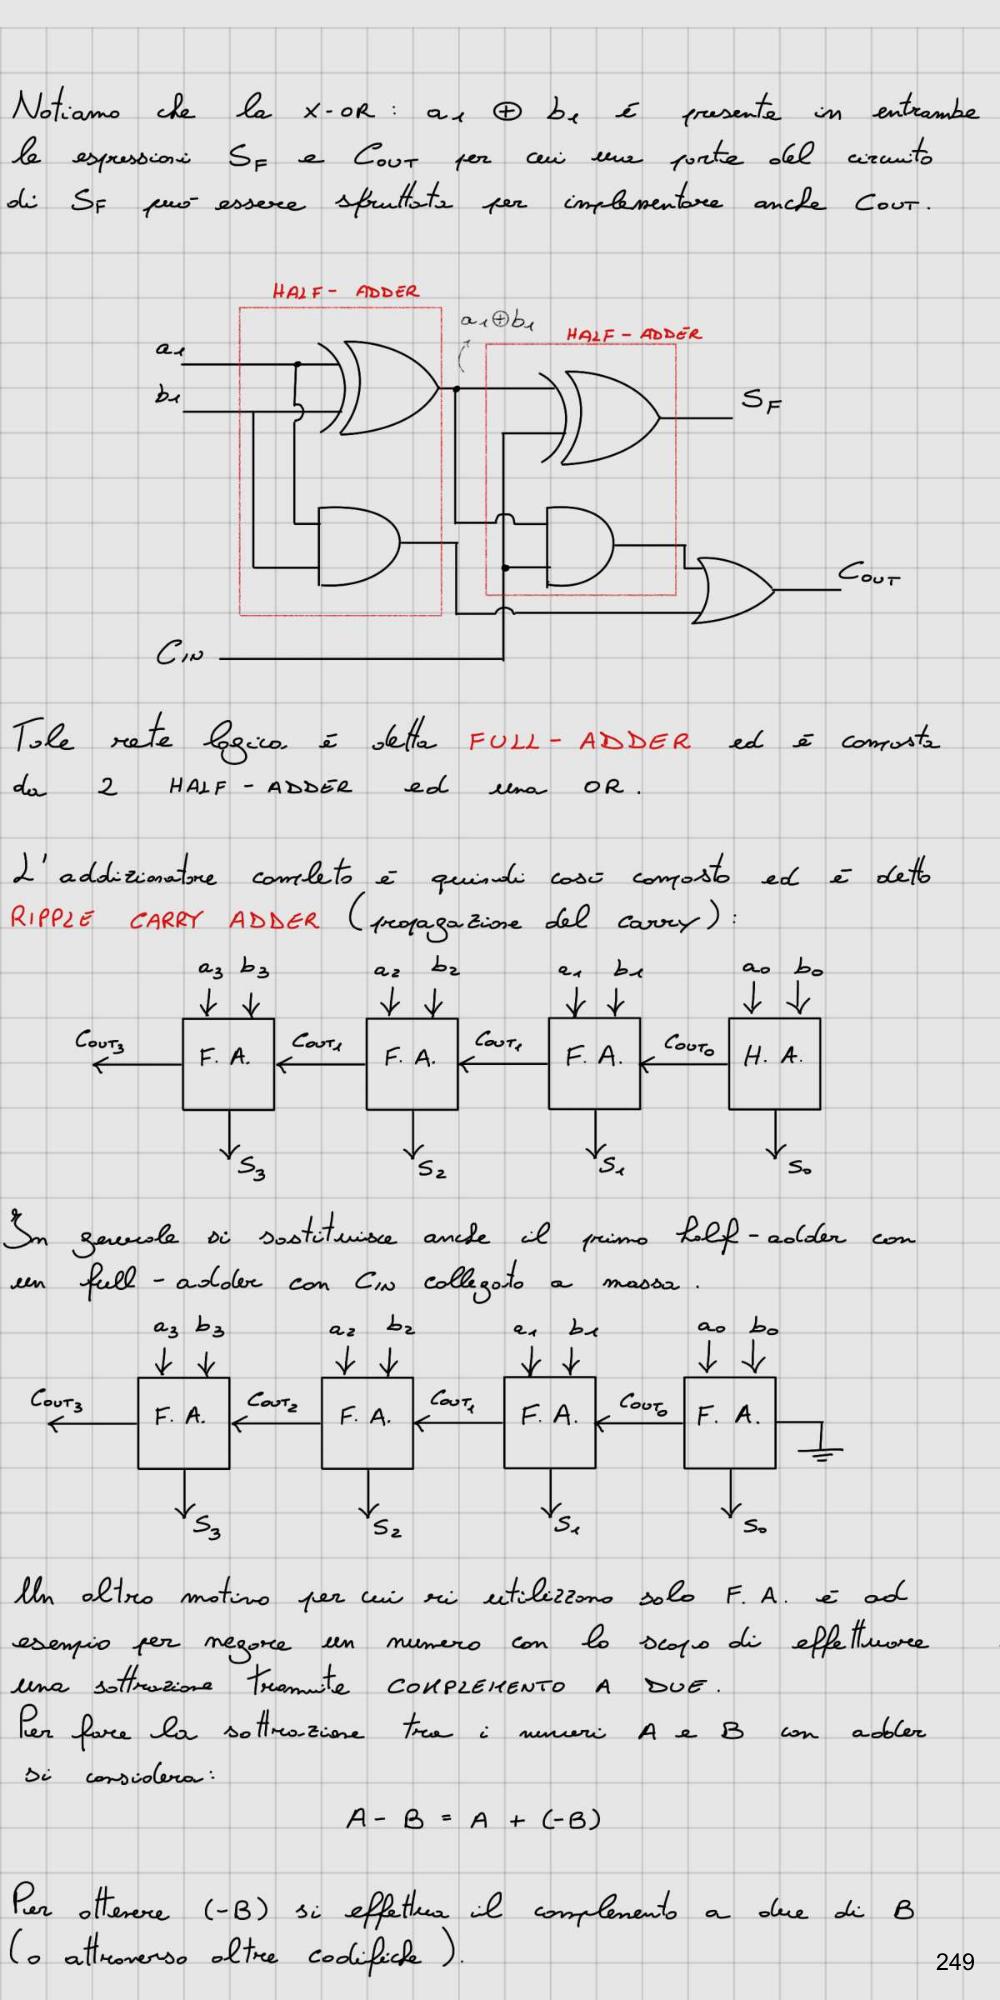 Notiamo che la X-OR: a1 ⊕ b1 è presente in entrambe
le espressioni SF e COUT per cui una parte del circuito
di SF può essere sfruttata per implementare anche COUT.
HALF - ADDER
a1⊕b1
HALF - ADDER
a1
b1
SF
COUT
CIN
Tale rete logica è detta FULL - ADDER ed è composta
da 2 HALF - ADDER ed una OR.
L'addizionatore completo è quindi così composto ed è detto
RIPPLE CARRY ADDER (propagazione del carry):
a3 b3 a2 b2 a1 b1 a0 b0
COUT3 F. A. COUT1 F. A. COUT1 F. A. COUT0 H. A.
S3 S2 S1 S0
In generale si sostituisce anche il primo half - adder con
un full - adder con CIN collegato a massa.
a3 b3 a2 b2 a1 b1 a0 b0
COUT3 F. A. COUT2 F. A. COUT1 F. A. COUT0 F. A.
S3 S2 S1 S0
Un altro motivo per cui si utilizzano solo F. A. è ad
esempio per negare un numero con lo scopo di effettuare
una sottrazione tramite COMPLEMENTO A DUE.
Per fare la sottrazione tra i numeri A e B con adder
si considera:
A - B = A + (-B)
Per ottenere (-B) si effettua il complemento a due di B
(o attraverso altre codifiche).
249